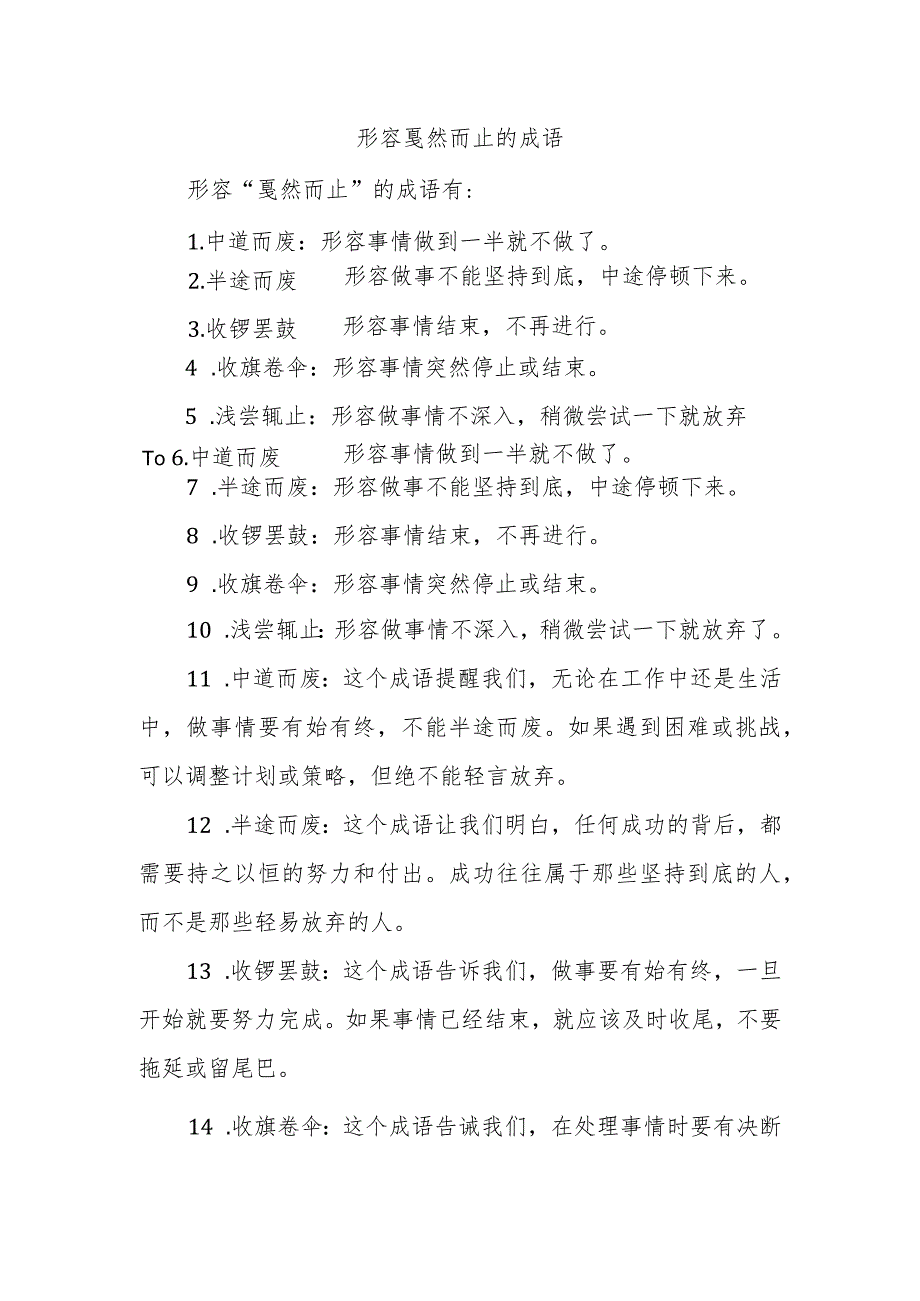 形容戛然而止的成语
形容“戛然而止”的成语有:
1.中道而废：形容事情做到一半就不做了。
2.半途而废 形容做事不能坚持到底，中途停顿下来。
3.收锣罢鼓 形容事情结束，不再进行。
4 .收旗卷伞：形容事情突然停止或结束。
5 .浅尝辄止：形容做事情不深入，稍微尝试一下就放弃
To 6.中道而废 形容事情做到一半就不做了。
7 .半途而废：形容做事不能坚持到底，中途停顿下来。
8 .收锣罢鼓：形容事情结束，不再进行。
9 .收旗卷伞：形容事情突然停止或结束。
10 .浅尝辄止：形容做事情不深入，稍微尝试一下就放弃了。
11 .中道而废：这个成语提醒我们，无论在工作中还是生活
中，做事情要有始有终，不能半途而废。如果遇到困难或挑战，
可以调整计划或策略，但绝不能轻言放弃。
12 .半途而废：这个成语让我们明白，任何成功的背后，都
需要持之以恒的努力和付出。成功往往属于那些坚持到底的人，
而不是那些轻易放弃的人。
13 .收锣罢鼓：这个成语告诉我们，做事要有始有终，一旦
开始就要努力完成。如果事情已经结束，就应该及时收尾，不要
拖延或留尾巴。
14 .收旗卷伞：这个成语告诫我们，在处理事情时要有决断